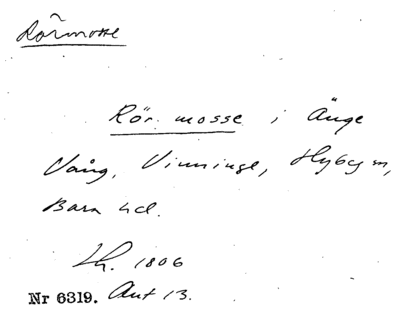 Rörmosse
Rör. mosse i Änge
Vång, Vinninge, Hyby sn,
Bara hd.
Lh. 1806
Nr 6319. Ant 13.